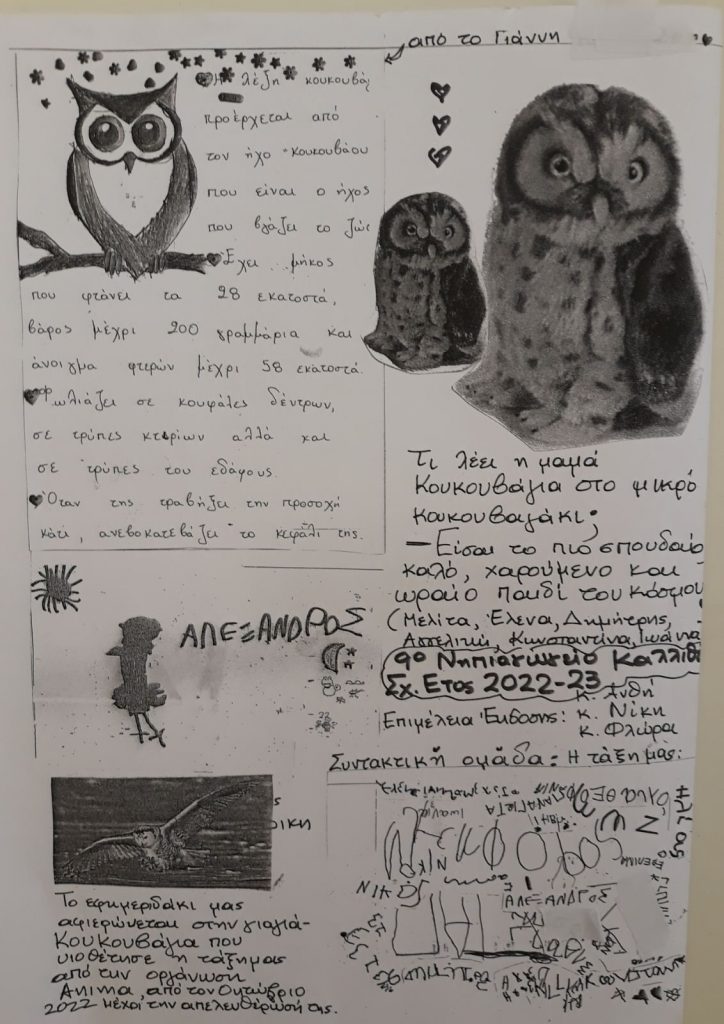 από το Γιάννη
Η λέξη κουκουβά
προέρχεται από
τον ήχο "κουκουβάου
που είναι ο ήχος
που βγάζει το ζώ
Έχει μήκος
που φτάνει τα 28 εκατοστά,
βάρος μέχρι 200 γραμμάρια και
άνοιγμα φτερών μέχρι 58 εκατοστά.
Φωλιάζει σε κουφάλες δέντρων,
σε τρύπες κτιρίων αλλά και
σε τρύπες του εδάφους.
Όταν της τραβήξει την προσοχή
κάτι, ανεβοκατεβάζει το κεφάλι της.
Τι λέει η μαμά
Κουκουβάγια στο μικρό
κουκουβαγάκι;
- Είσαι το πιο σπουδαίο
καλό, χαρούμενο και
ωραίο παιδί του κόσμου
(Μελίτα, Έλενα, Δημήτρης,
Αγγελική, Κωνσταντίνα, Ιωάννα
9ο Νηπιαγωγείο Καλλιθ
Σχ. Έτος 2022-23
Επιμέλεια Έκδοσης: κ. Ανθή
κ. Νίκη
κ. Φλώρα
Συντακτική ομάδα: Η τάξη μας:
ΑΛΕΞΑΝΔΡΟΣ
Το εφημεριδάκι μας
αφιερώνεται στην γιαγιά-
Κουκουβάγια που
υιοθέτησε η τάξη μας
από την οργάνωση
Anima, από τον Οκτώβριο
2022 μέχρι την απελευθέρωσή της.
ΠΑΝΑΓΙΩΤΑ
ΟΛΓΑ
ΗΛΙΑς
ΝΙΚΟ
ΑΛΕΞΑΝΔΓΟΣ